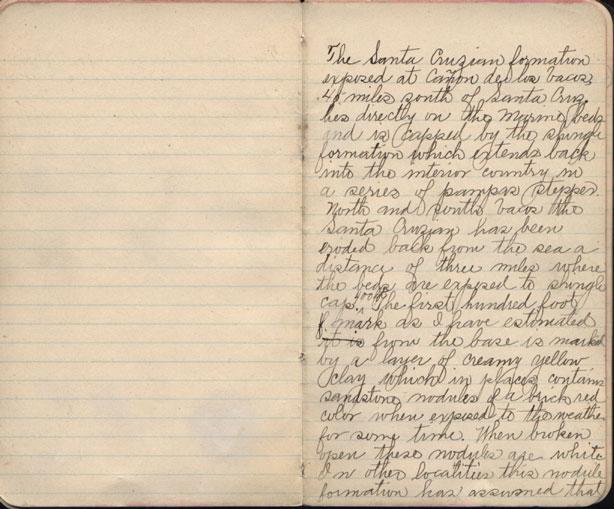 The Santa Cruzian formation
exposed at Cañon de los Vacos
40 miles south of Santa Cruz
lies directly on the Marine beds
and is capped by the shingle
formation which extends back
into the interior country in
a series of pampas steppes.
North and south Vacos the
Santa Cruzian has been
eroded back from the sea a
distance of three miles where
the beds are exposed to shingle
cap. The first hundred foot
mark as I have estimated
it is from the base is marked
by a layer of creamy yellow
clay which in places contains
sandstone nodules of a brick red
color when exposed to the weather
for some time. When broken
open these nodules are white
In other localities this nodule
formation has assumed that